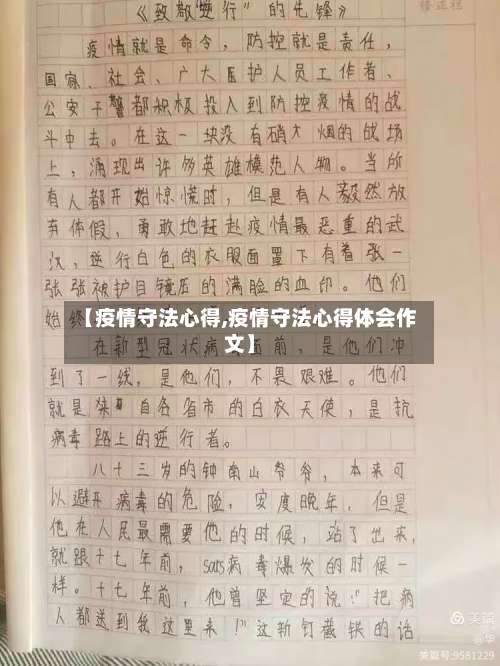 《致敬"逆行"的先锋》
修正栏
疫情就是命令，防控就是责任，
国家、社会、广大医护人员工作者、
公安干警都积极投入到防控疫情的战
斗中去。在这一块没有硝烟的战场
上，涌现出许多英雄模范人物。当所
有人都开始惊慌时，但是有人毅然放
弃休假，勇敢地赶赴疫情最恶重的武
汉，逆行白色的衣服面罩下有着张一
张张被护目镜压的满脸的血印。他们
始终
【疫情守法心得,疫情守法心得体会作
文】
在新型冠状病 面前，是他们冲
到了一线，是他们，不畏艰难。他们
就是 自各省市的白衣天使，是抗
病毒路上的逆行者。
八十三岁的钟南山爷爷，本来可
以避开病毒的危险，安度晚年，但是
他在人民最需要他的时候，站了出来，
就跟十七年前，sars病毒爆发的时候一
样。十七年前，他曾坚定的说："把病
人都送到我这里来！"这斩钉截铁的话
美篇
美篇号:9581229